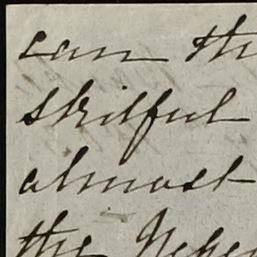 can th
skilful
almost
the